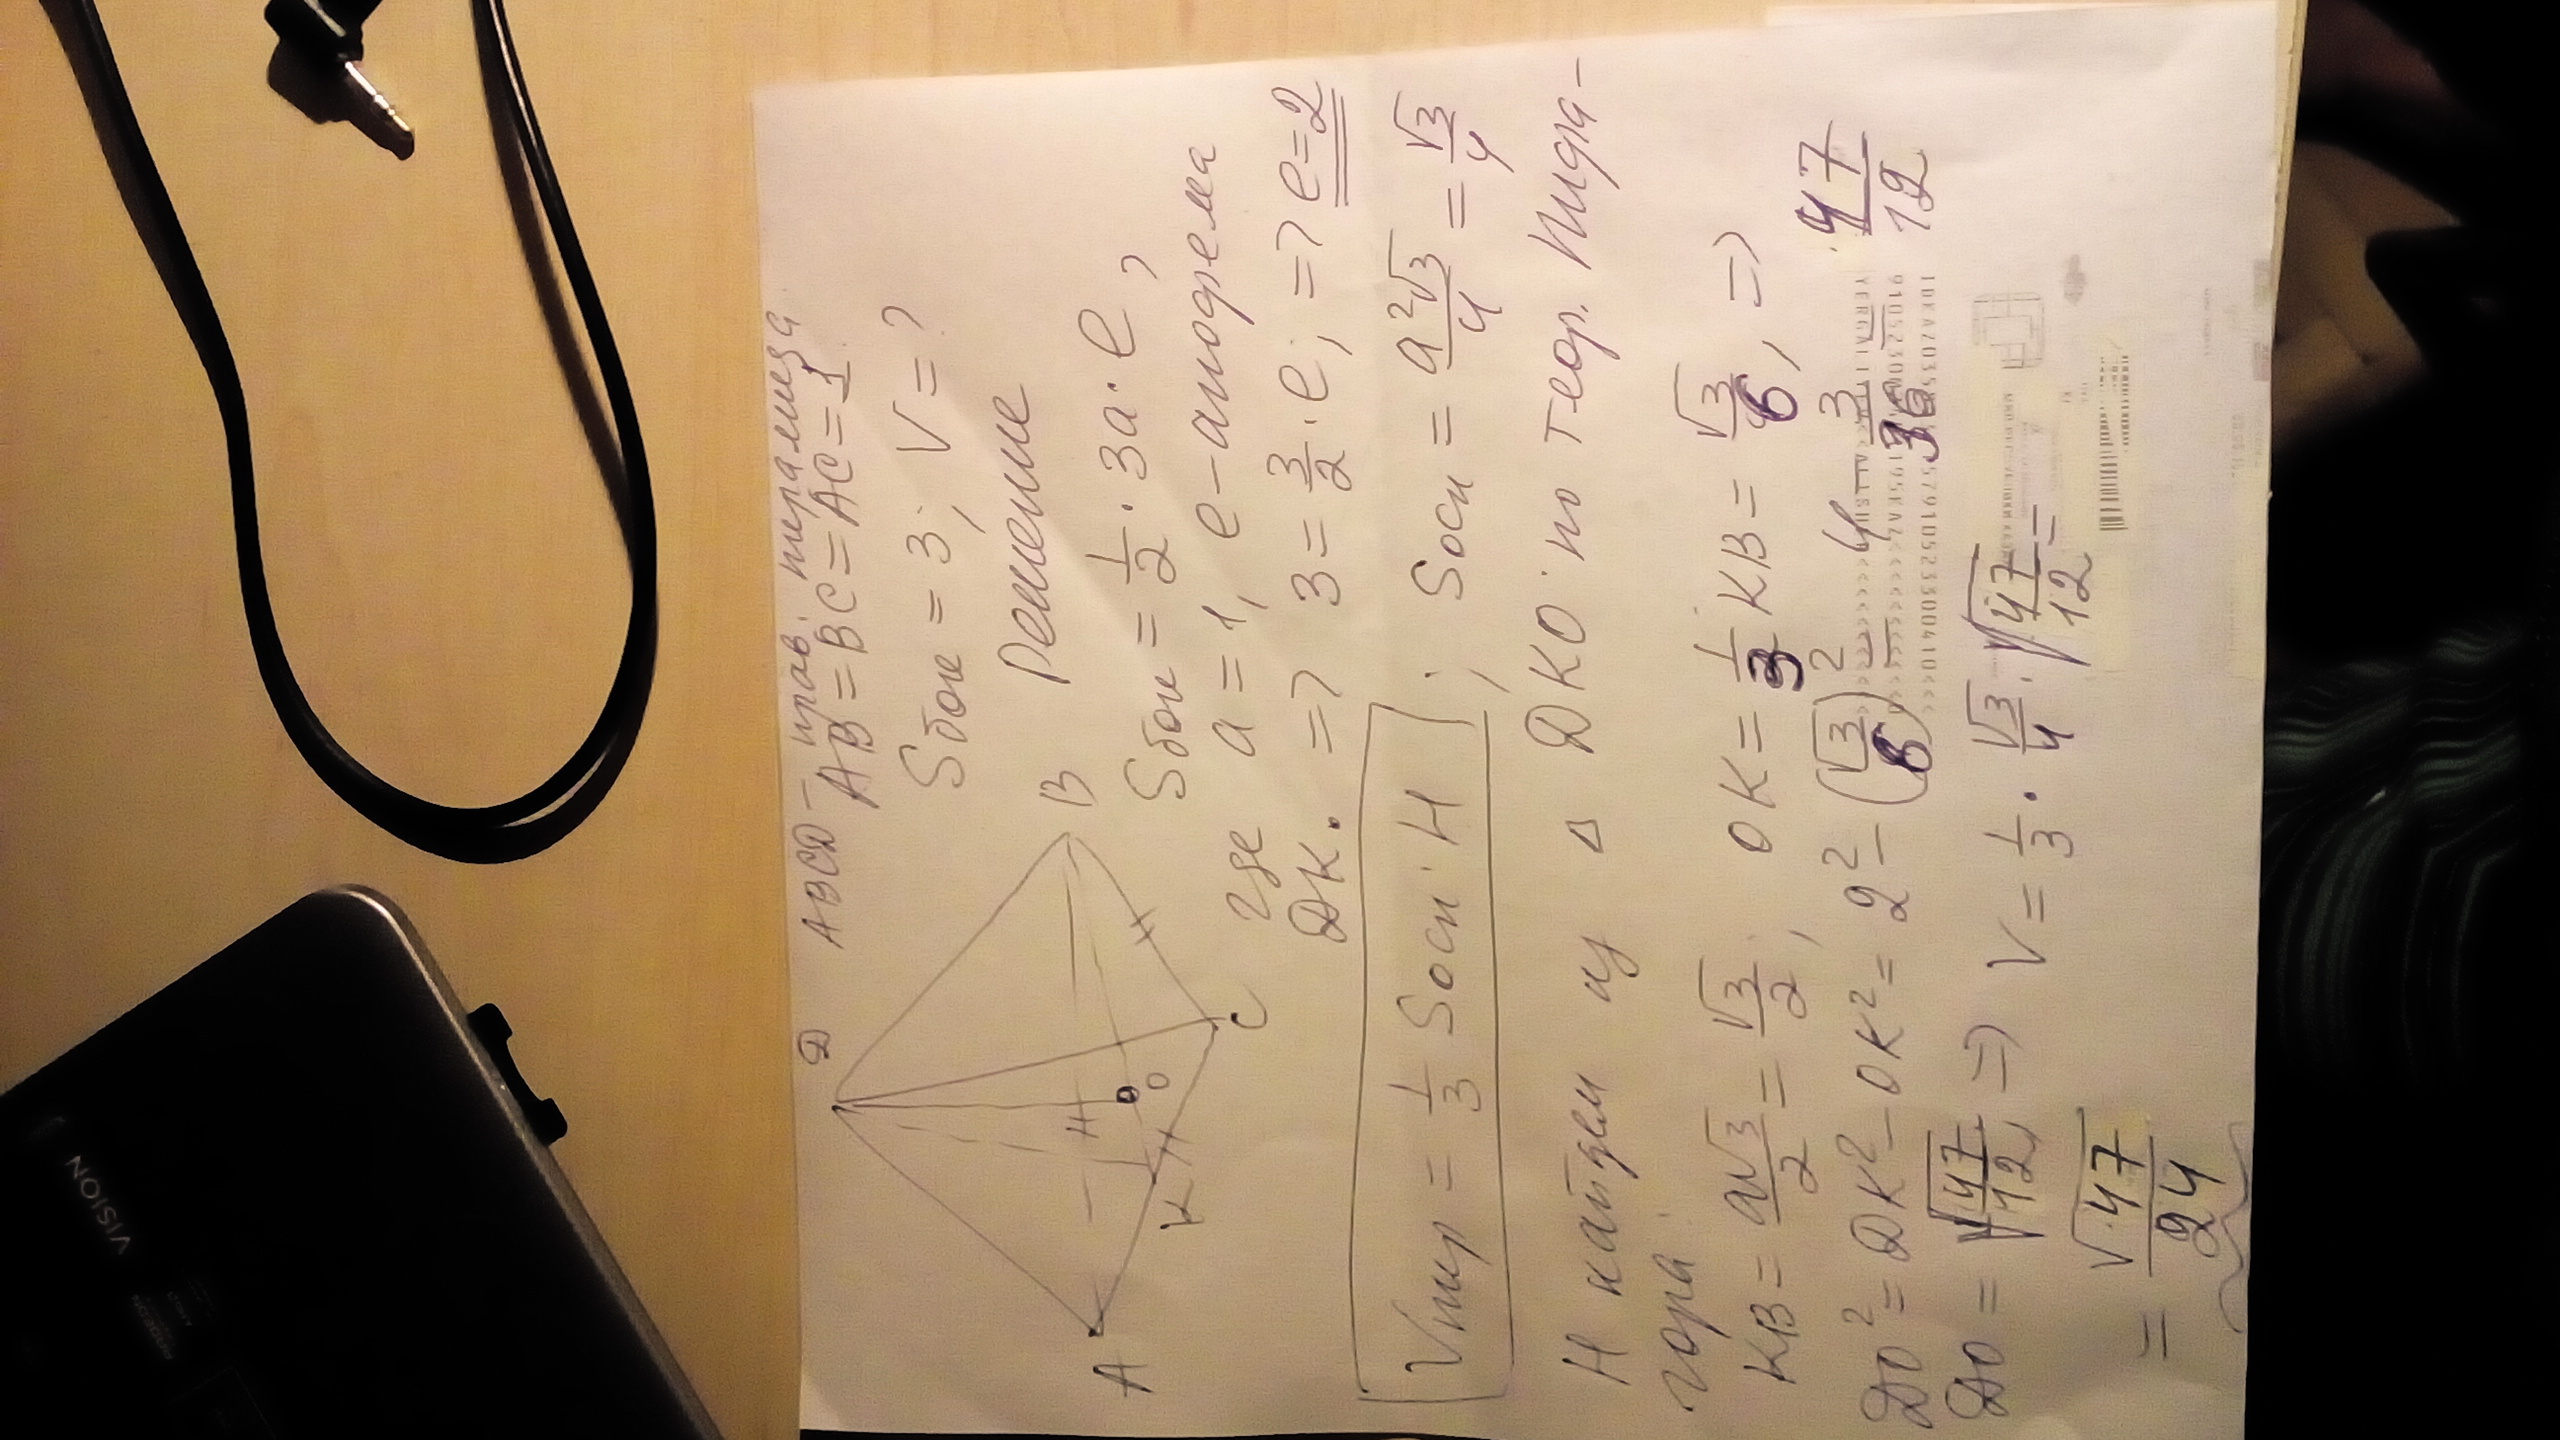 ABCD – прав. пирамида
AB = BC = AC = 1
Sбок = 3; V = ?
Решение
Д
A
B
C
K
H
O
Sбок = 1/2 · 3a · e,
где a = 1, e – апофема
ДK. => 3 = 3/2 · e; => e = 2
Vпир = 1/3 Sосн · H ; Sосн = a²√3/4 = √3/4
H найдем из Δ ДKO по теор. Пифа-
гора
KB = a√3/2 = √3/2; OK = 1/3 KB = √3/6, =>
ДO² = ДK² – OK² = 2² – (√3/6)² 4 3/36 47/12
ДO = √47/12, => V = 1/3 · √3/4 · √47/12 =
= √47/24
VISION